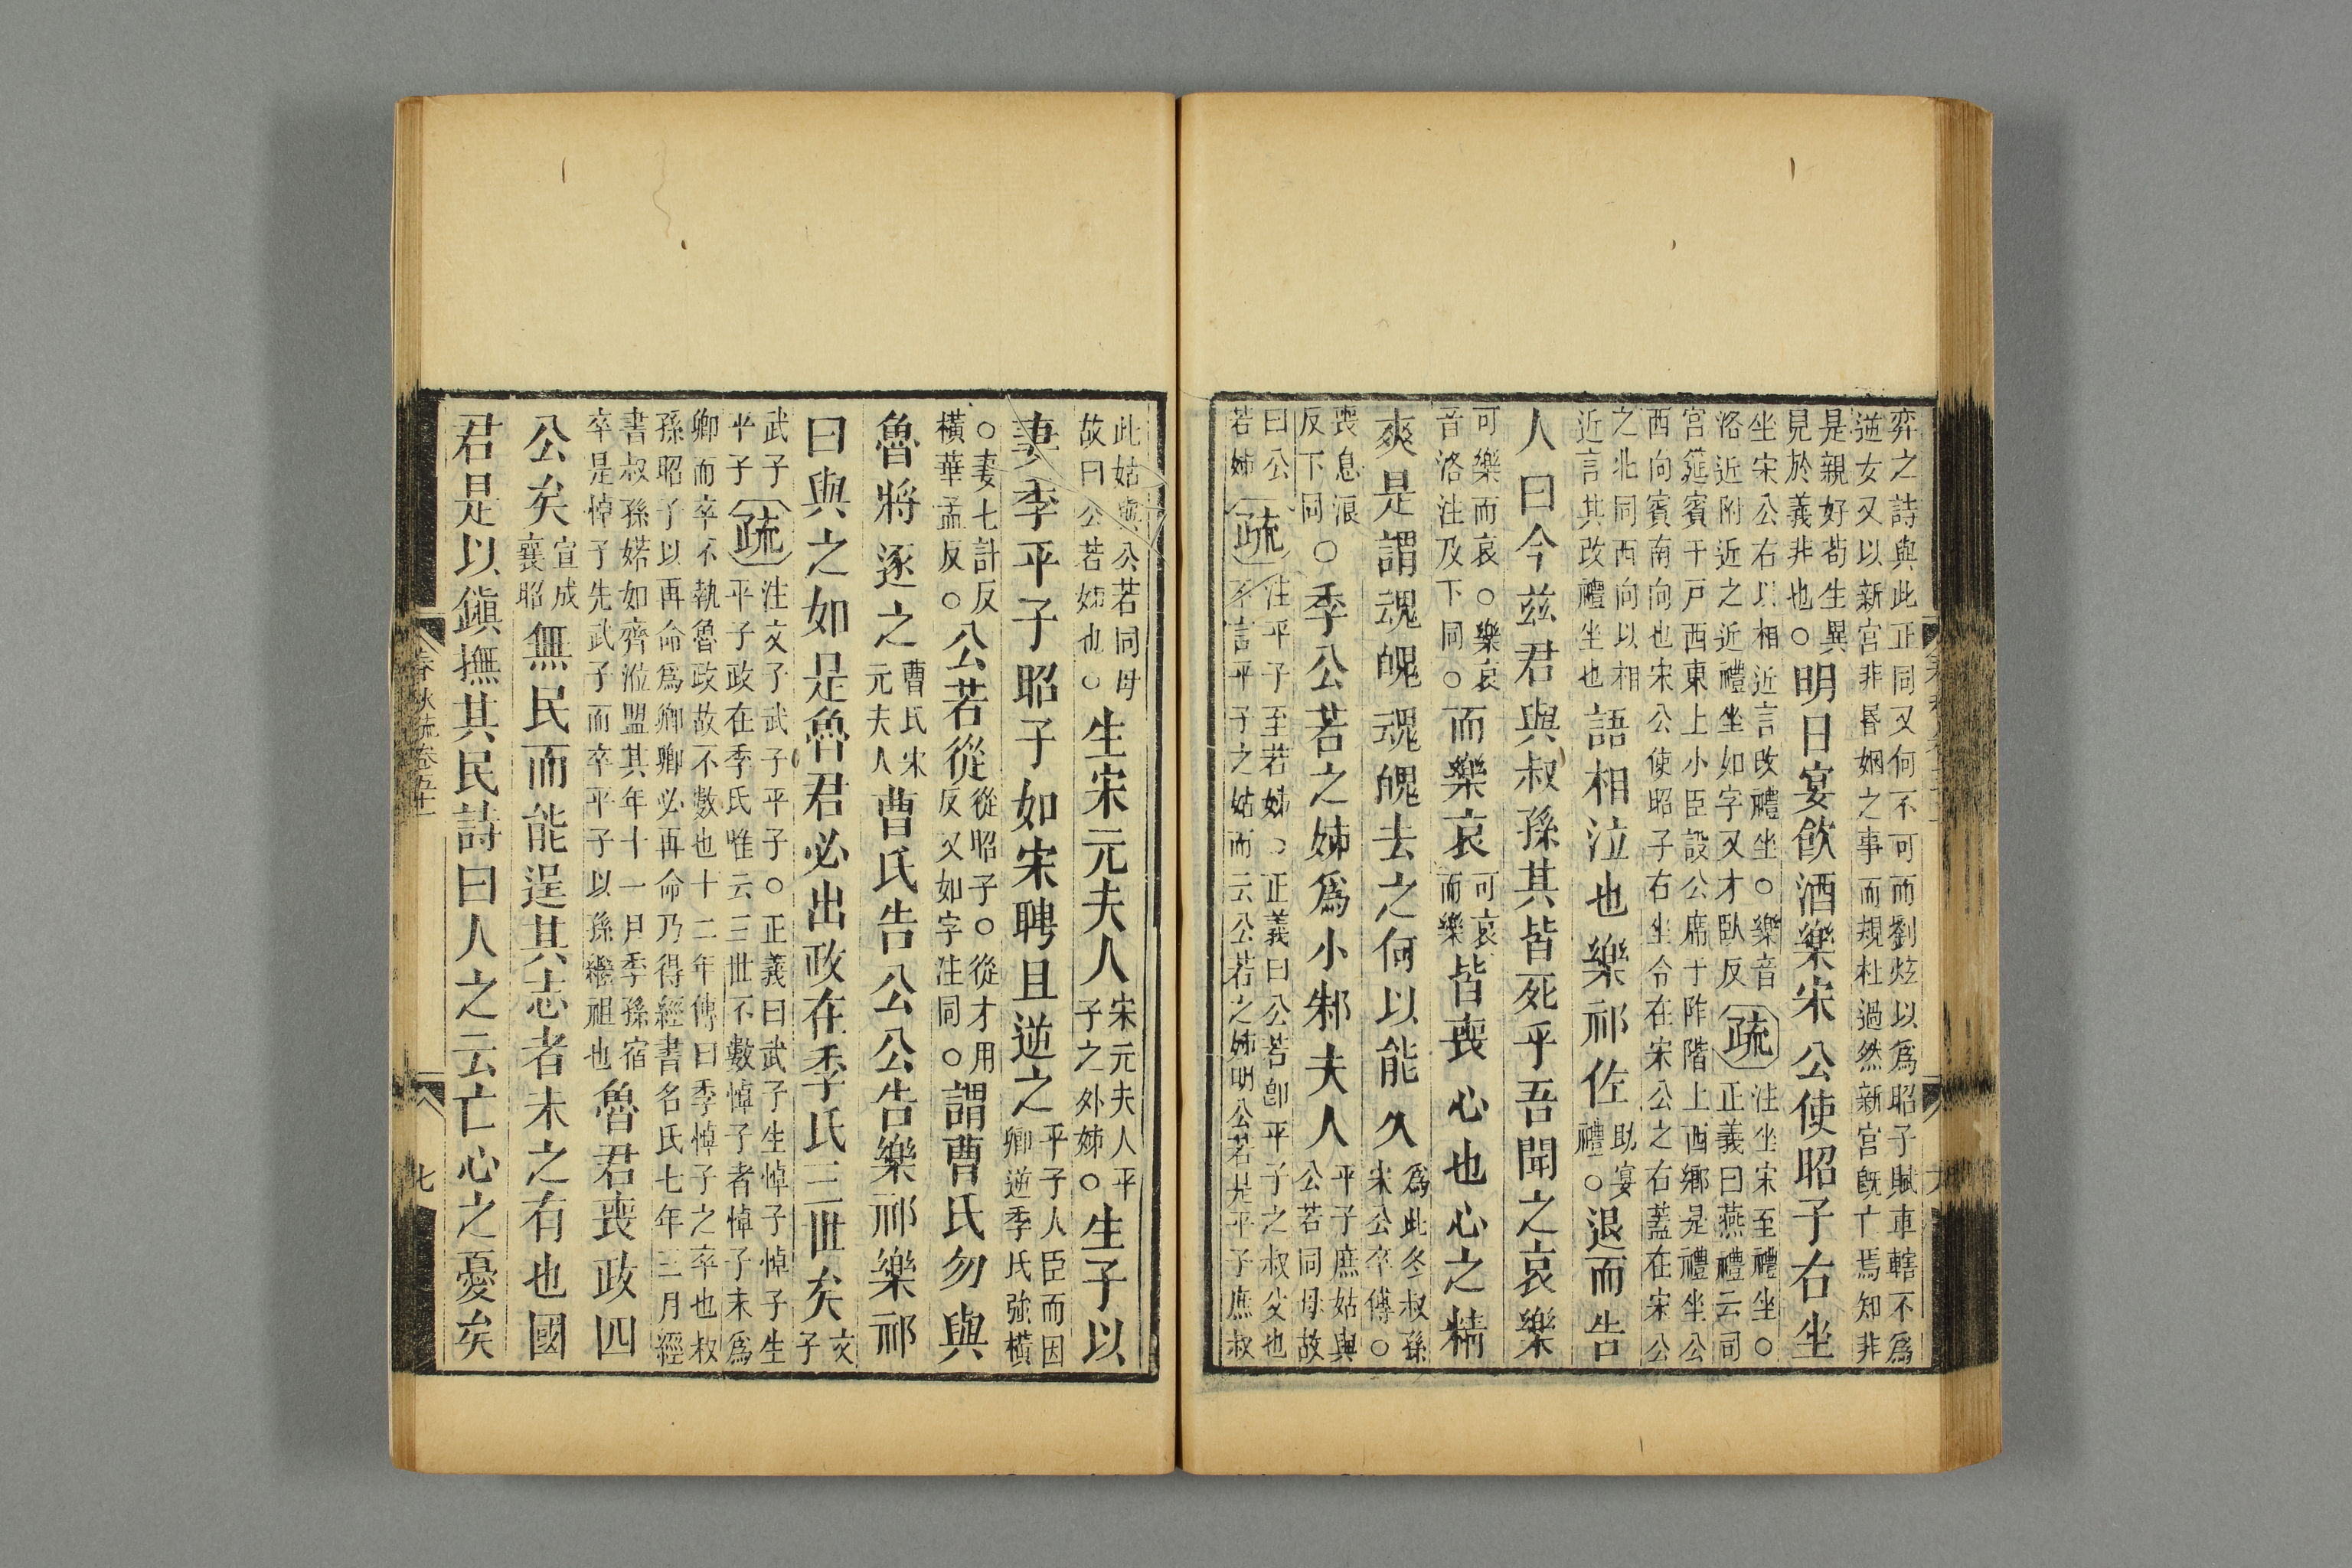 弈之詩與此正同又何不可而劉炫以爲昭子賦車轄不爲
逆女又以新宮非昏姻之事而規杜過然新宮旣亡焉知非
是親好苟生異
見於義非也○
明日宴飮酒樂宋公使昭子右坐
坐宋公右以相近言改禮坐○樂音
洛近附近之近禮坐如字又才臥反
疏
注坐宋至禮坐○
正義曰燕禮云司
宮筵賓于戸西東上小臣設公席于阼階上西鄉是禮坐公
西向賓南向也宋公使昭子右坐令在宋公之右蓋在宋公
之北同西向以相
近言其改禮坐也
語相泣也樂祁佐
助宴
禮○
退而告
人曰今茲君與叔孫其皆死乎吾聞之哀樂
可樂而哀○樂哀
音洛注及下同○
而樂哀
可哀
而樂
皆喪心也心之精
爽是謂魂魄魂魄去之何以能久
爲此冬叔孫
宋公卒傳○
喪息浪
反下同
○季公若之姊爲小邾夫人
平子庶姑與
公若同母故
曰公
若姊
疏
注平子至若姊○正義曰公若卽平子之叔父也
不言平子之姑而云公若之姊明公若是平子庶叔
此姑與公若同母
故曰公若姊也○
生宋元夫人
宋元夫人平
子之外姊○
生子以
妻季平子昭子如宋聘且逆之
平子人臣而因
卿逆季氏強橫
○妻七計反
橫華孟反○
公若從
從昭子○從才用
反又如字注同○
謂曹氏勿與
魯將逐之
曹氏宋
元夫人
曹氏告公公告樂祁樂祁
曰與之如是魯君必出政在季氏三世矣
文
子
武子
平子
疏
注文子武子平子○正義曰武子生悼子悼子生
平子政在季氏唯云三世不數悼子者悼子未爲
卿而卒不執魯政故不數也十二年傳曰季悼子之卒也叔
孫昭子以再命爲卿卿必再命乃得經書名氏七年三月經
書叔孫婼如齊涖盟其年十一月季孫宿
卒是悼子先武子而卒平子以孫繼祖也
魯君喪政四
公矣
宣成
襄昭
無民而能逞其志者未之有也國
君是以鎭撫其民詩曰人之云亡心之憂矣
春秋疏卷五十一
七